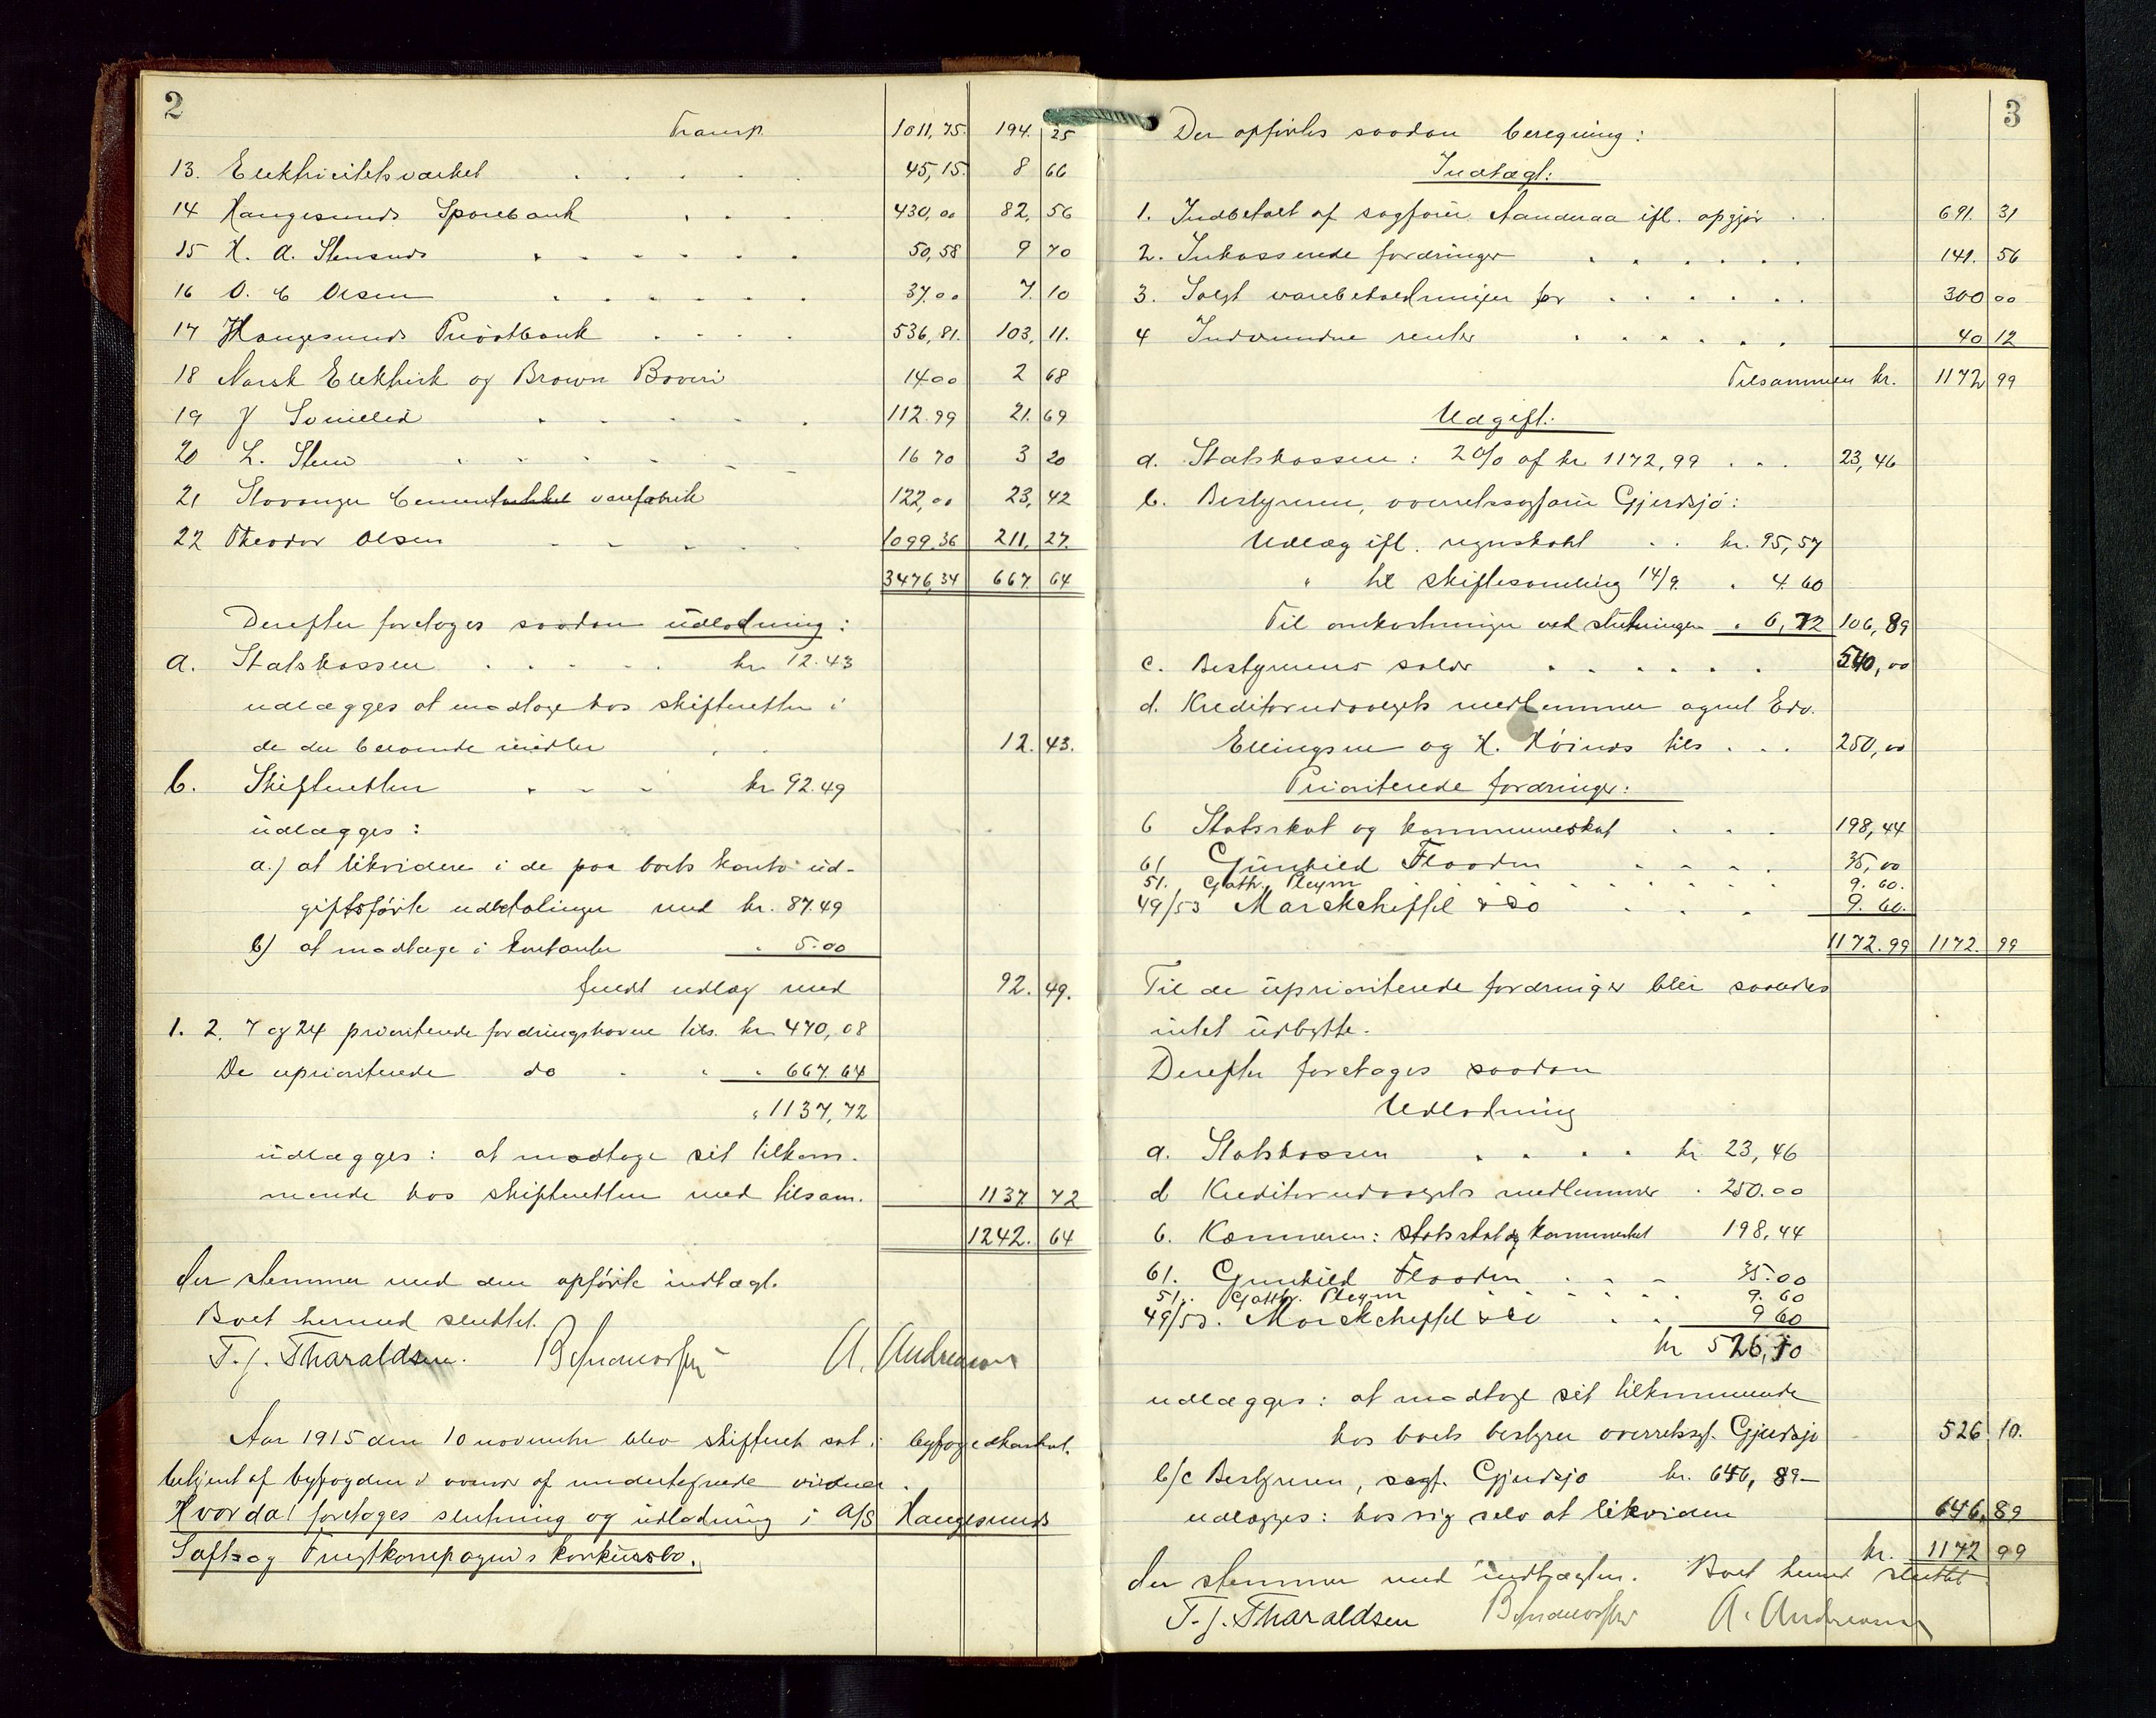 2
Transp. 1011,75. 194. 25
13. Elektricitetsværket . . . . . 45,15. 8 66
14 Haugesunds Sparebank . . . 430,00 82, 56
15 H. A. Stensnes . . . . . . 50,58 9 70
16 O. C Olsen . . . . . . 37.00 7. 10
17 Haugesunds Privatbank . . . . 536,81. 103, 11.
18 Norsk Elektrisk og Brown Boveri 1400 2 68
19 J Sømeled . . . . . 112.99 21. 69
20 L. Stene . . . . . . 16 70 3 20
21 Stavanger Cement varefabrik 122,00 23, 42
22 Theodor Olsen . . . . . 1099.36 211. 27.
3476,34 667. 64
Derefter foretages saadan udlodning:
a. Statskassen . . . . . kr 12.43
udlægges at modtage hos skifteretten i
de der beroende midler . . 12. 43.
b. Skifteretten . . . kr 92.49
udlægges:
a.) at likvidere i de paa boets konto ud-
giftsførte udbetalinger med kr. 87.49
b) at modtage i kontanter . 5.00
fuldt udlæg med 92. 49.
1. 2. 7 og 24 prioriterede fordringshavere tils. kr 470,08
De uprioriterede do . . . 667.64
" 1137,72
udlægges: at modtage sit tilkom-
mende hos skifteretten med tilsam. 1137 72
1242. 64
der stemmer med den opførte indtægt.
Boet hermed sluttet.
T. J. Tharaldsen. A. Andreasen
Aar 1915 den 10 november blev skifteret sat i byfogedkontoret.
betjent af byfogden i overvær af undertegnede vidner.
Hvorda! foretages slutning og udlodning i A/S Haugesunds
Saft og Frugtkompagnis konkursbo.
3
Der opførtes saadan beregning:
Indtægt:
1. Indbetalt af sagfører Aanderaa ifl. opgjør . . 691. 31
2. Inkasserede fordringer . . . . . . 141. 56
3. Solgt varebeholdningen for . . . . . . 300 00
4 Indvundne renter . . . . . . 40 12
Tilsammen kr. 1172 99
Udgift:
a. Statskassen: 2 % af kr 1172,99 . . . 23,46
b. Bestyreren, overretssagfører Gjerdsjø:
Udlæg ifl. regnskab . . kr. 95,57
" til skiftesamling 14/9. . 4.60
Til omkostninger ved slutningen . 6,72 106,89
c. Bestyrerens salær . . . . . . 540,00
d. Kreditorudvalgets medlemmer agent Edv.
Ellingsen og H. Høines tils . . . 250,00
Prioriterede fordringer:
6 Statsskat og kommuneskat . . . 198,44
61 Gunhild Flaaden . . . . 35,00
51. Gathr. Pleym . . . . . . . . 9. 60.
49/53 Marckscheffel & Co . . . 9. 60.
1172.99 1172. 99
Til de uprioriterede fordringer blir saaledes
intet udbytte.
Derefter foretages saadan
Udlodning
a. Statskassen . . . . kr. 23,46
d Kreditorudvalgets medlemmer . 250.00
6. Kæmneren: statsskat og kommuneskat 198,44
61. Gunhild Flaaden . . . 35.00
51. Gathr. Pleym . . . . . . 9. 60
49/53. Marckscheffel & Co . . 9 60
kr 526,10
udlægges: at modtage sit tilkommende
hos boets bestyrer overretssagf. Gjerdsjø 526 10.
b/c Bestyreren, sagf. Gjerdsjø kr. 646, 89
udlægges: hos sig selv at likvidere 646. 89
kr. 1172 99
der stemmer med indtægten. Boet hermed sluttet
T. J. Tharaldsen A. Andreasen